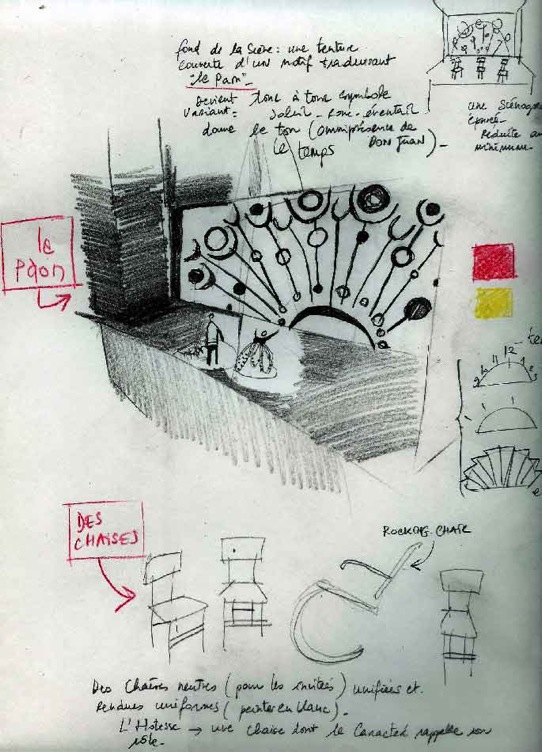 fond de la Scène : une tenture
couverte d'un motif traduisant
"le Paon"
Devient tour à tour symbole
variant : Soleil - roue - éventail
dans le ton (omniprésence de
le temps DON JUAN) -
une Scénogra
épurée.
Réduite au
minimum.
le
Paon
12
DES
CHAISES
ROCKING. CHAIR
Des Chaises neutres (pour les invités) unifiées et.
Rendues uniformes (peintes en blanc).
L'Hôtesse → une chaise dont le Caractère rappelle son
rôle.